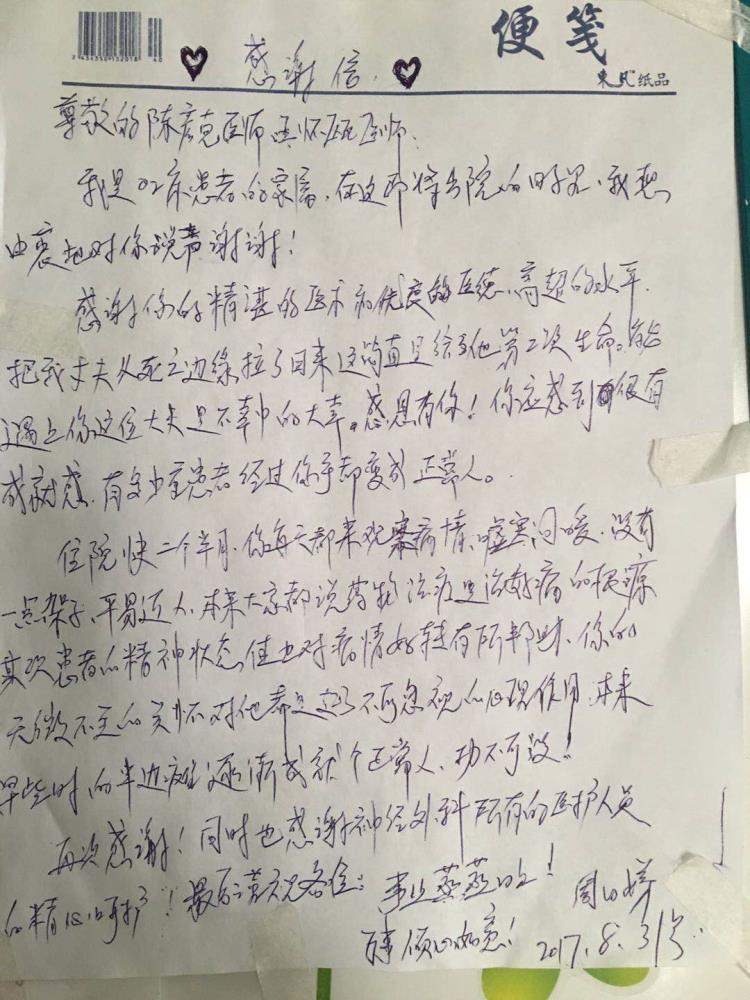 便笺
東凡纸品
感谢信
尊敬的陈彦克医师 医师
我是02床患者的家属,在这即将出院的日子里,我想
由衷地对你说声谢谢!
感谢你的精湛的医术和优良的医德、高超的水平.
把我丈夫从死亡边缘拉了回来这简直是给了他第二次生命。能
遇上你这位大夫是不幸中的大幸。感恩有你!你应感到很有
成就感.有多少重患者经过你手都变成正常人。
住院快二个半月.你每天都来观察病情,嘘寒问暖.没有
一点架子,平易近人.本来大家都说药物治疗是治好病的根源
其次患者的精神状态佳也对病情好转有所帮助.你的
无微不至的关怀对他都起过了不可忽视的 作用.本来
早些时的半边瘫逐渐成就个正常人.功不可没!
再次感谢!同时也感谢神经外科所有的医护人员
的精心呵护!最后请祝各位:事业蒸蒸日上!
万事顺心如意!
2017.8.31号